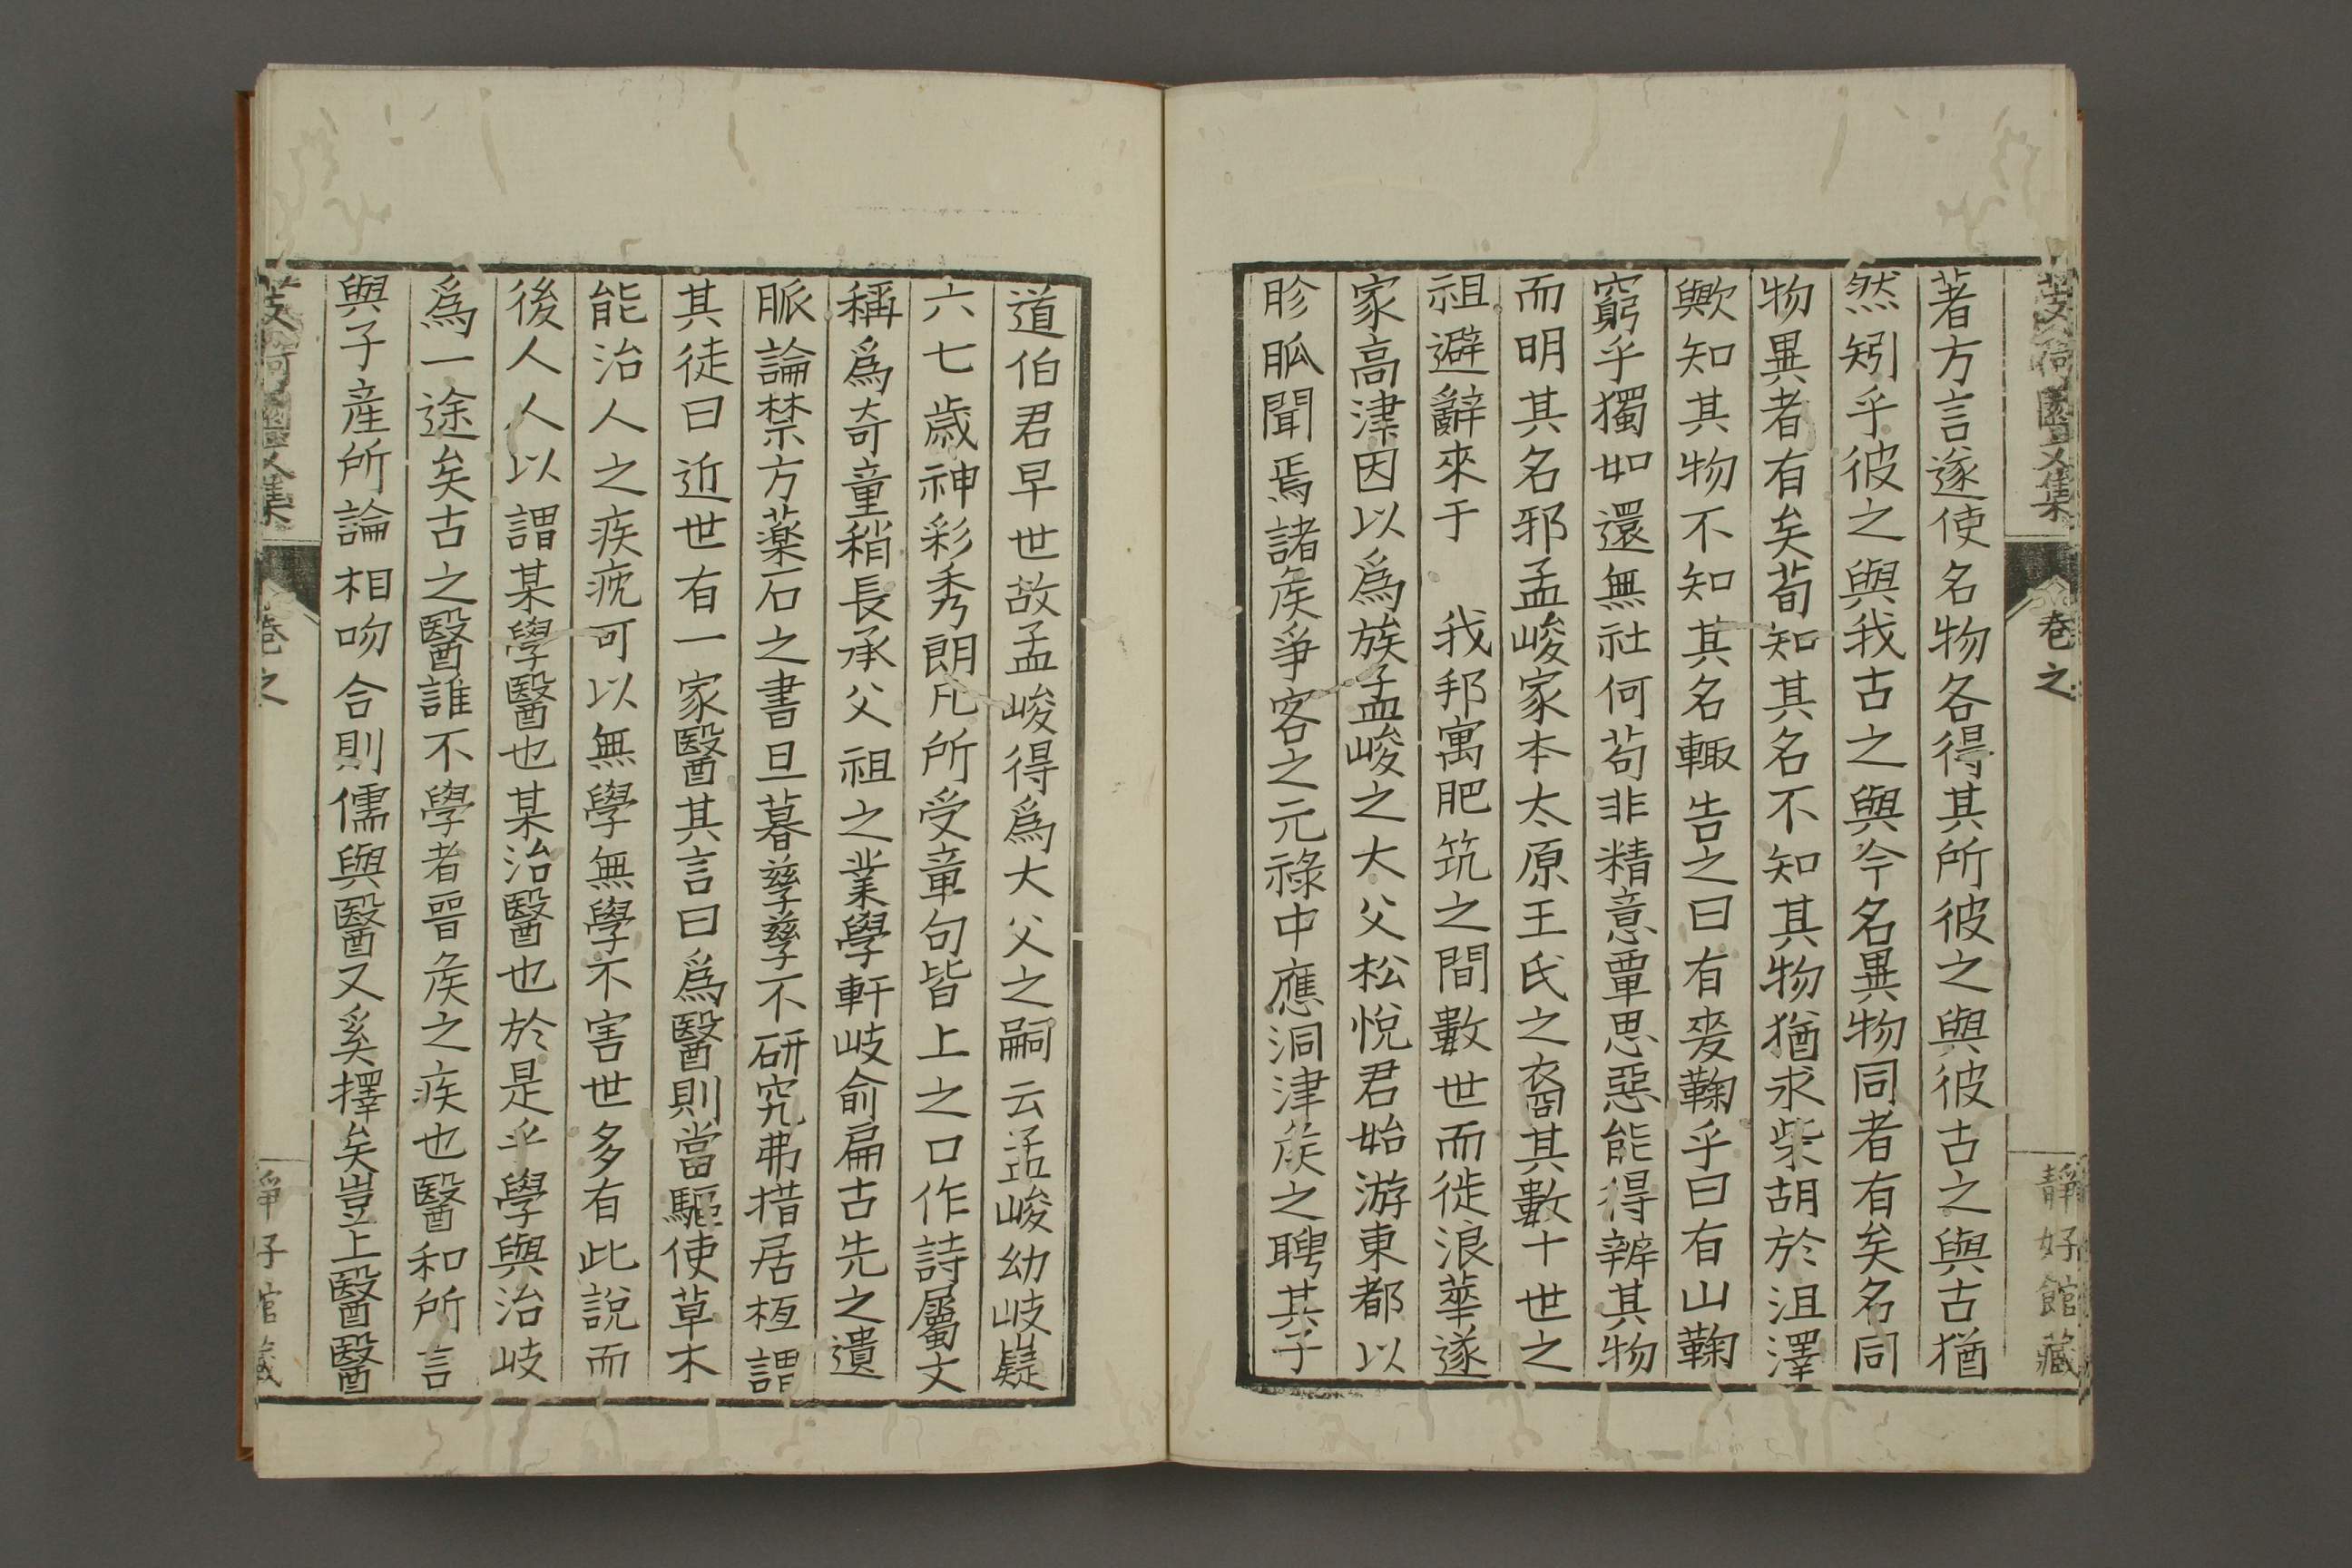 著方言遂使名物各得其所彼之與彼古之與古猶
然矧乎彼之與我古之與今名異物同者有矣名同
物異者有矣荀知其名不知其物猶求柴胡於沮澤
歟知其物不知其名輙告之曰有麥鞠乎曰有山鞠
窮乎獨如還無社何苟非精意覃思惡能得辨其物
而明其名邪孟峻家本太原王氏之裔其數十世之
祖避辭來于　我邦寓肥筑之間數世而徙浪華遂
家高津因以爲族孟峻之大父松悅君始游東都以
胗胍聞焉諸矦爭客之元祿中應洞津矦之聘其子
道伯君早世故孟峻得爲大父之嗣云孟峻幼岐嶷
六七歲神彩秀朗凡所受章句皆上之口作詩屬文
稱爲奇童稍長承父祖之業學軒岐俞扁古先之遺
脈論禁方薬石之書旦暮孳孳不研究弗措居恆謂
其徒曰近世有一家醫其言曰爲醫則當驅使草木
能治人之疾疣可以無學無學不害世多有此說而
後人人以謂某學醫也某治醫也於是乎學與治岐
爲一途矣古之醫誰不學者晉矦之疾也醫和所言
與子産所論相吻合則儒與醫又奚擇矣豈上醫醫
醫文集
卷之
靜好館藏